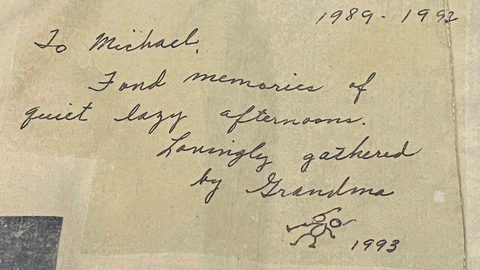 1989-1992
To Michael,
Fond memories of
quiet lazy afternoons.
Lovingly gathered
by Grandma
1993